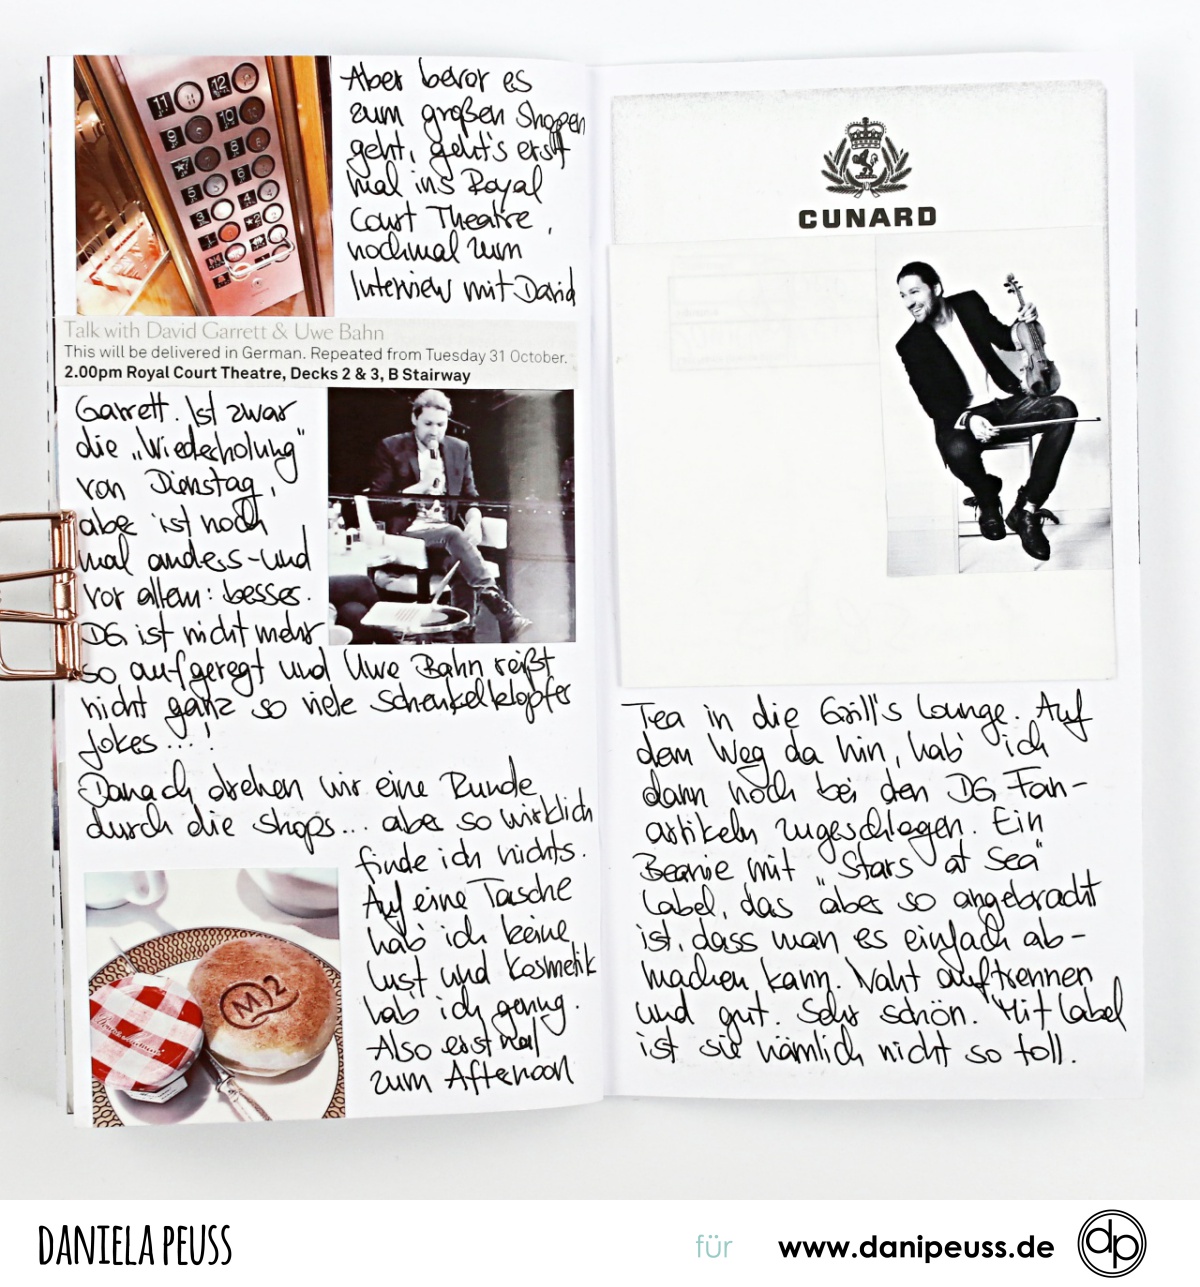 Aber bevor es
zum großen Shoppen
geht, geht's erst
mal ins Royal
Court Theatre,
nochmal zum
Interview mit David
Talk with David Garrett & Uwe Bahn
This will be delivered in German. Repeated from Tuesday 31 October.
2.00pm Royal Court Theatre, Decks 2 & 3, B Stairway
Garrett. Ist zwar
die „Wiederholung"
von Dienstag,
aber ist noch
mal anders - und
vor allem: besser.
DG ist nicht mehr
so aufgeregt und Uwe Bahn reißt
nicht ganz so viele Schenkelklopfer
Jokes...!
Danach drehen wir eine Runde
durch die Shops... aber so wirklich
finde ich nichts.
Auf eine Tasche
hab' ich keine
Lust und Kosmetik
hab' ich genug.
Also erst mal
zum Afternoon
11 12
9 10
7 8
5 6
3 4
1 2
QM2
CUNARD
Tea in die Grill's Lounge. Auf
dem Weg da hin, hab' ich
dann noch bei den DG Fan-
artikeln zugeschlagen. Ein
Beanie mit "Stars at Sea"
Label, das aber so angebracht
ist, dass man es einfach ab-
machen kann. Naht auftrennen
und gut. Sehr schön. Mit Label
ist sie nämlich nicht so toll.
DANIELA PEUSS
für www.danipeuss.de
dp